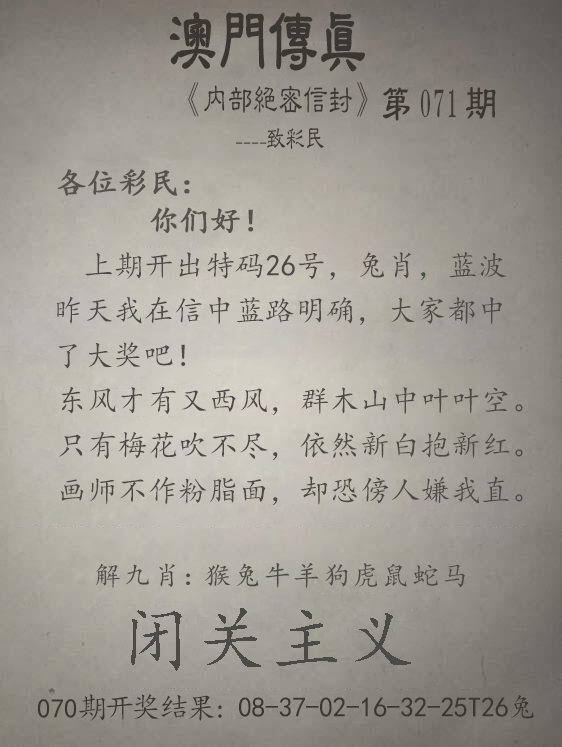 澳門傳眞
《内部絕密信封》第071期
----致彩民
各位彩民：
你们好！
上期开出特码26号，兔肖，蓝波
昨天我在信中蓝路明确，大家都中
了大奖吧！
东风才有又西风，群木山中叶叶空。
只有梅花吹不尽，依然新白抱新红。
画师不作粉脂面，却恐傍人嫌我直。
解九肖：猴兔牛羊狗虎鼠蛇马
闭关主义
070期开奖结果：08-37-02-16-32-25T26兔